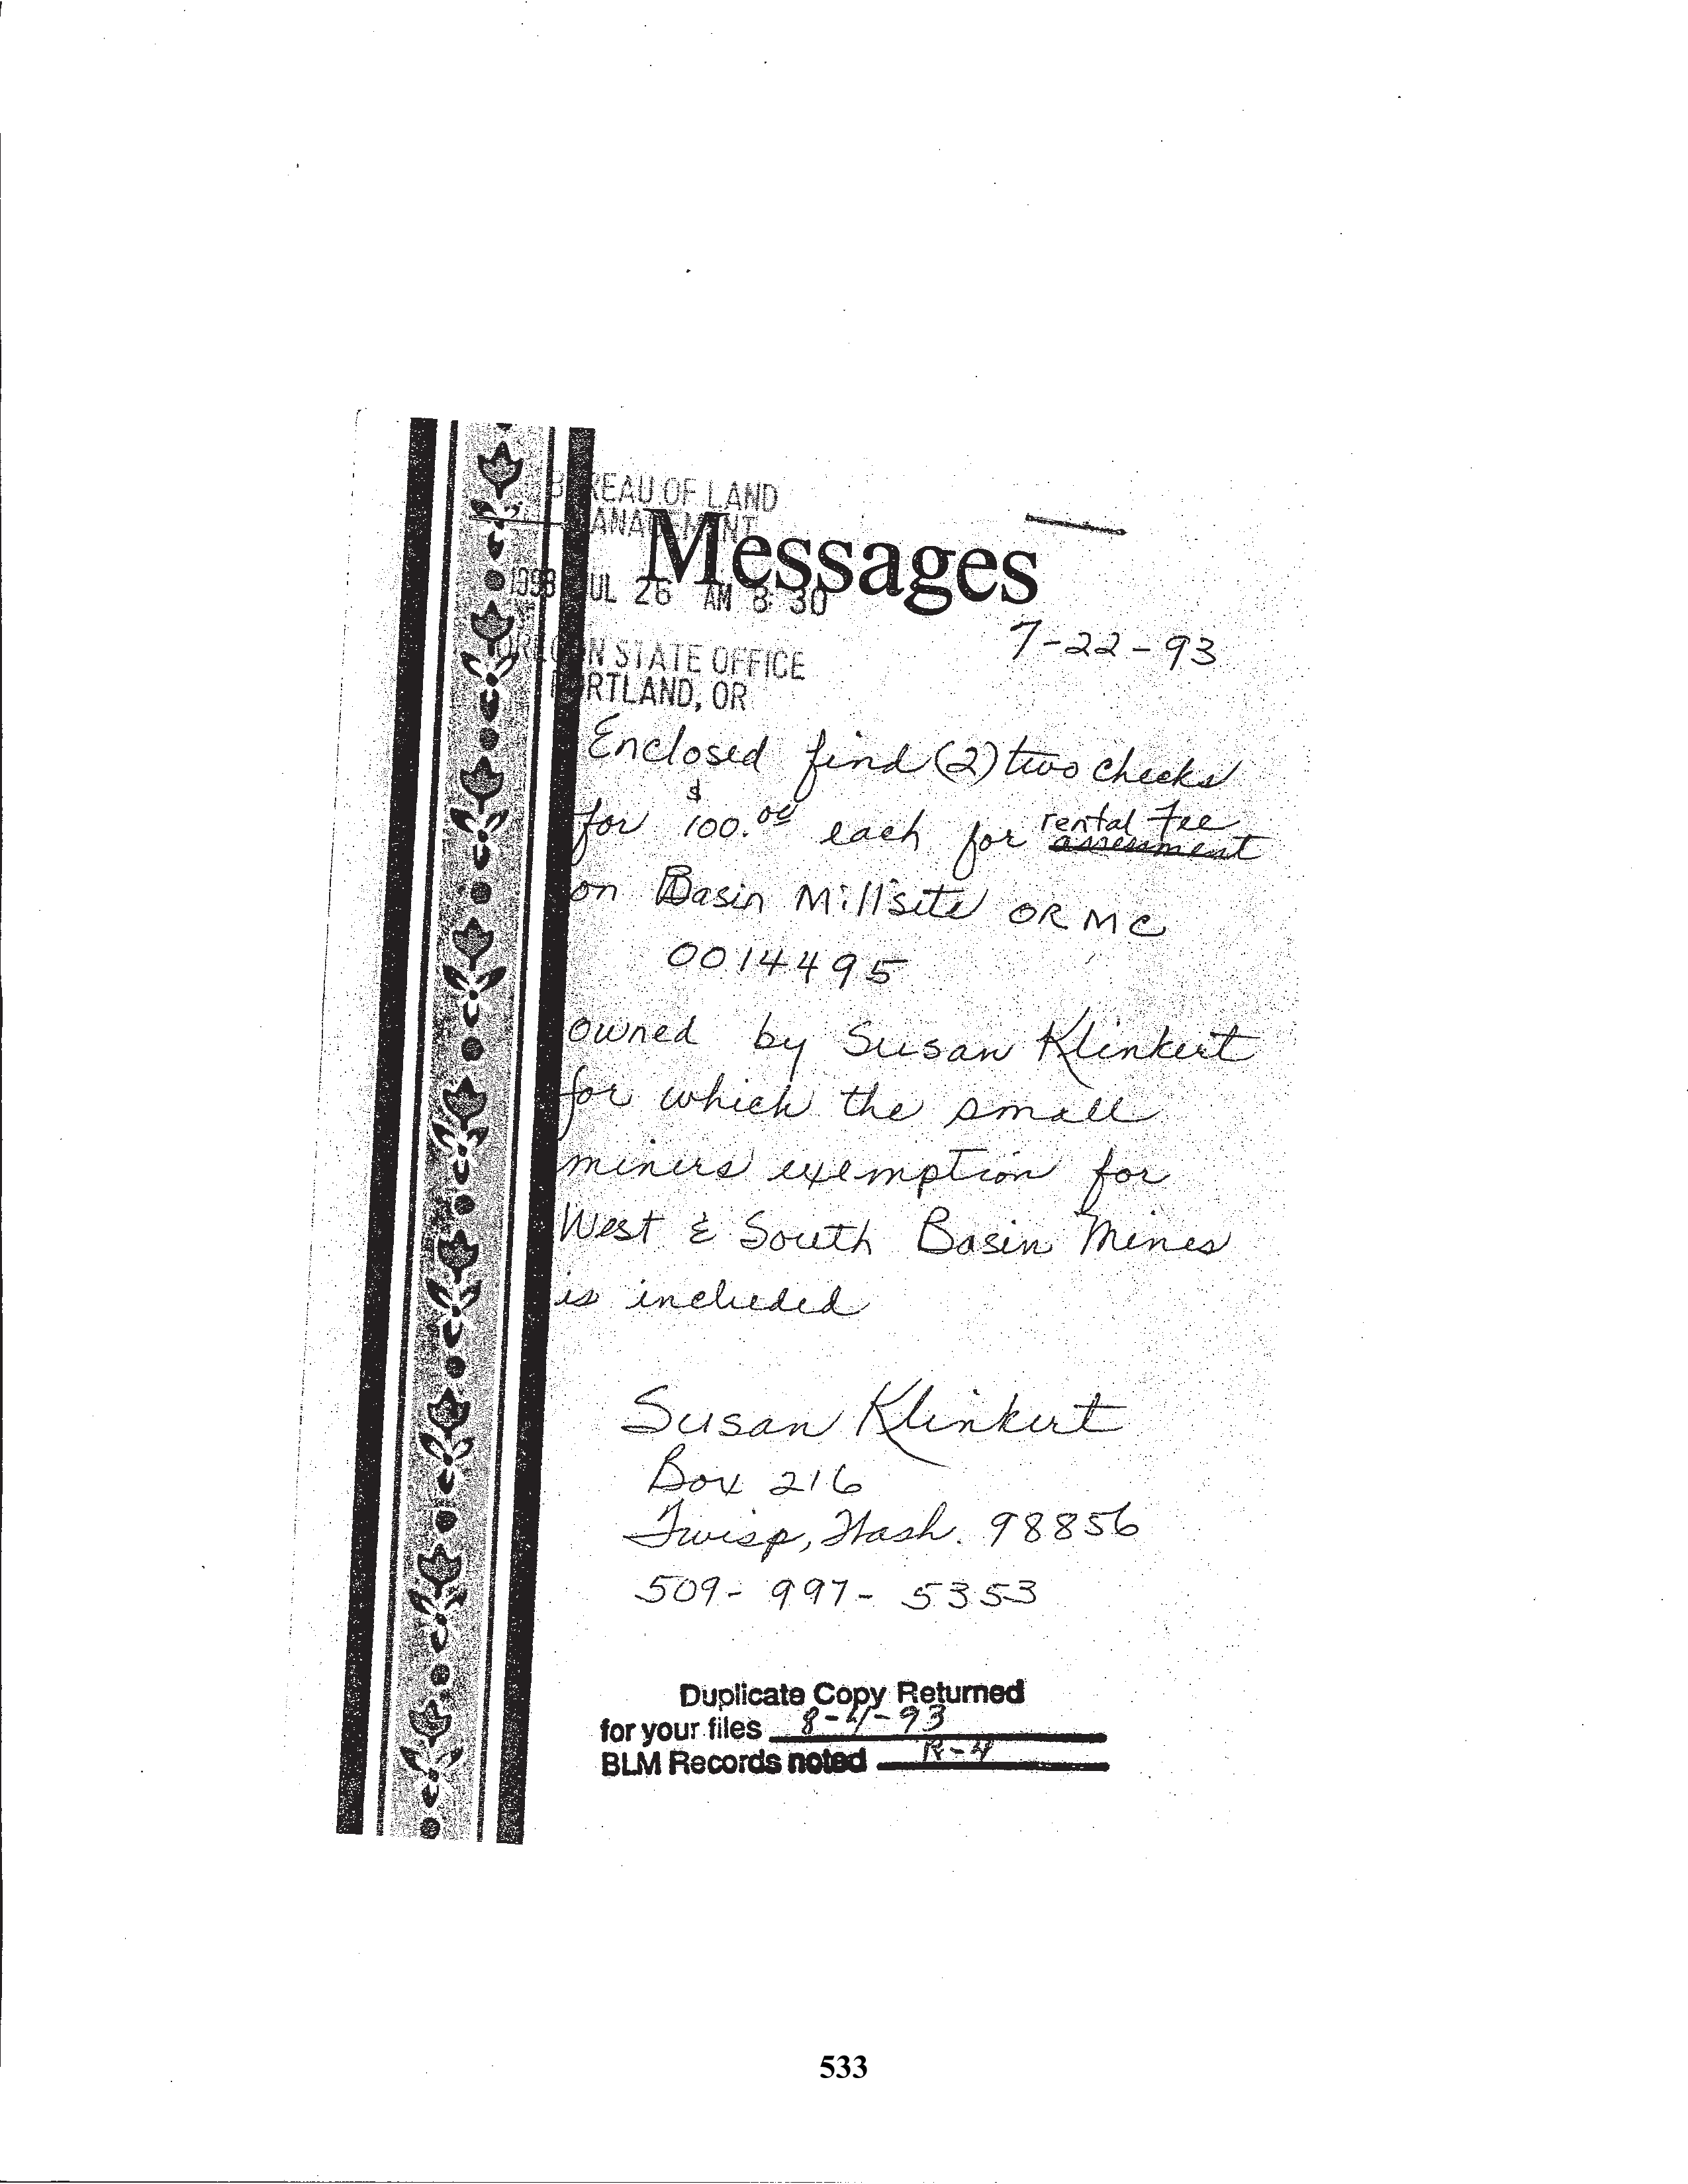 BUREAU OF LAND
MANAGEMENT
Messages
1993 JUL 26 AM 8:30
7-22-93
OREGON STATE OFFICE
PORTLAND, OR
Enclosed find (2) two checks
for $100.00 each for rental fee
assessment
on Basin Millsite OR MC
0014495
owned by Susan Klinkert
for which the small
miners exemption for
West & South Basin Mines
is included
Susan Klinkert
Box 216
Twisp, Wash. 98856
509-997-5353
Duplicate Copy Returned
for your files 8-4-93
BLM Records noted R-4
533